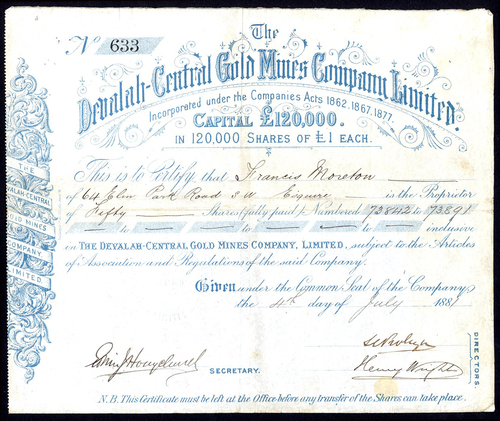 The
No 633
Devalah-Central Gold Mines Company, Limited.
Incorporated under the Companies Acts 1862. 1867. 1877.
CAPITAL £120,000.
IN 120,000 SHARES OF £1 EACH.
This is to Certify that Francis Moreton
of 64 Elm Park Road S.W. Esquire is the Proprietor
of Fifty Shares (fully paid) Numbered 73842 to 73891
to to to to to inclusive
in THE DEVALAH-CENTRAL GOLD MINES COMPANY, LIMITED, subject to the Articles
of Association and Regulations of the said Company.
Given under the Common Seal of the Company,
the 4th day of July 1881
SECRETARY.
Henry Wright
DIRECTORS.
N.B. This Certificate must be left at the Office before any transfer of the Shares can take place.
THE
DEVALAH-CENTRAL
GOLD MINES
COMPANY
LIMITED